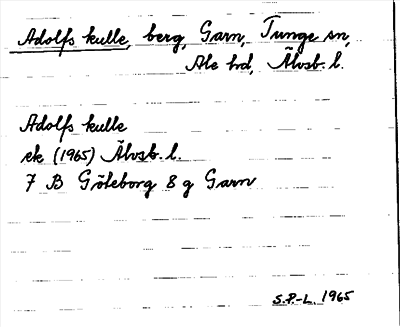 Adolfs kulle, berg, Garn, Tunge sn,
Ale hd, Älvsb. l.
Adolfs kulle
ek (1965) Älvsb. l.
7 B Göteborg 8 g Garn
S.P.-L. 1965